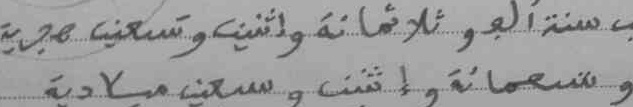 سنة ألف و ثلاثمائة وإثنين وتسعين هجرية
و تسعمائة و إثنين و سبعين ميلادية